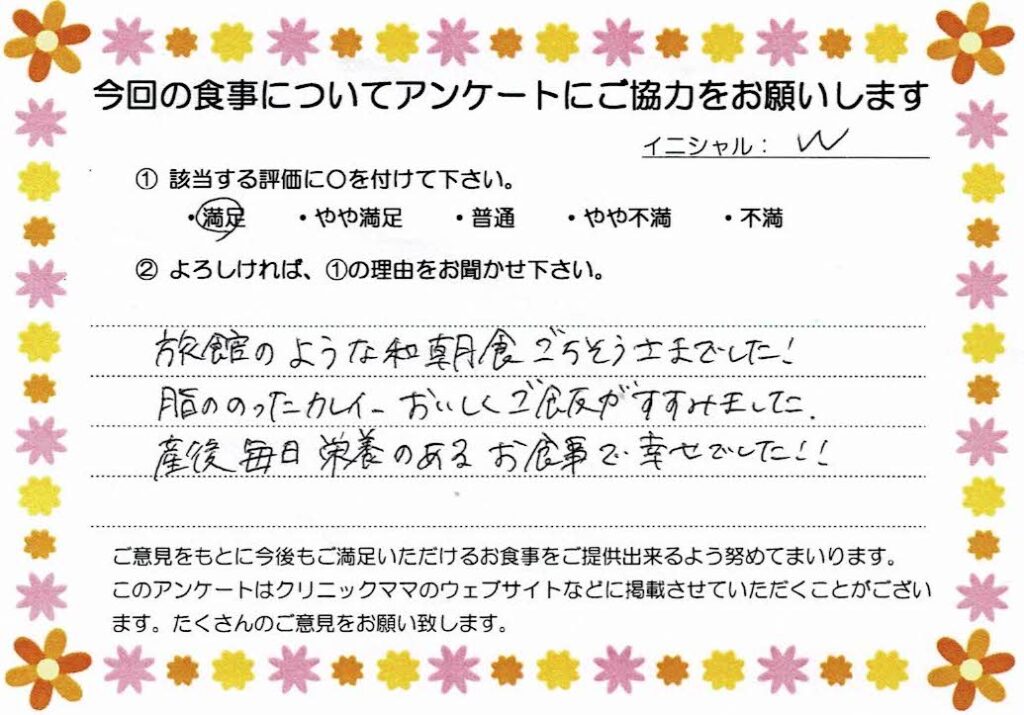 今回の食事についてアンケートにご協力をお願いします
イニシャル： W
① 該当する評価に〇を付けて下さい。
・満足 ・やや満足 ・普通 ・やや不満 ・不満
② よろしければ、①の理由をお聞かせ下さい。
旅館のような和朝食ごちそうさまでした！
脂ののったカレイー おいしくご飯がすすみました.
産後毎日栄養のあるお食事で幸せでした!!
ご意見をもとに今後もご満足いただけるお食事をご提供出来るよう努めてまいります。
このアンケートはクリニックママのウェブサイトなどに掲載させていただくことがござい
ます。たくさんのご意見をお願い致します。